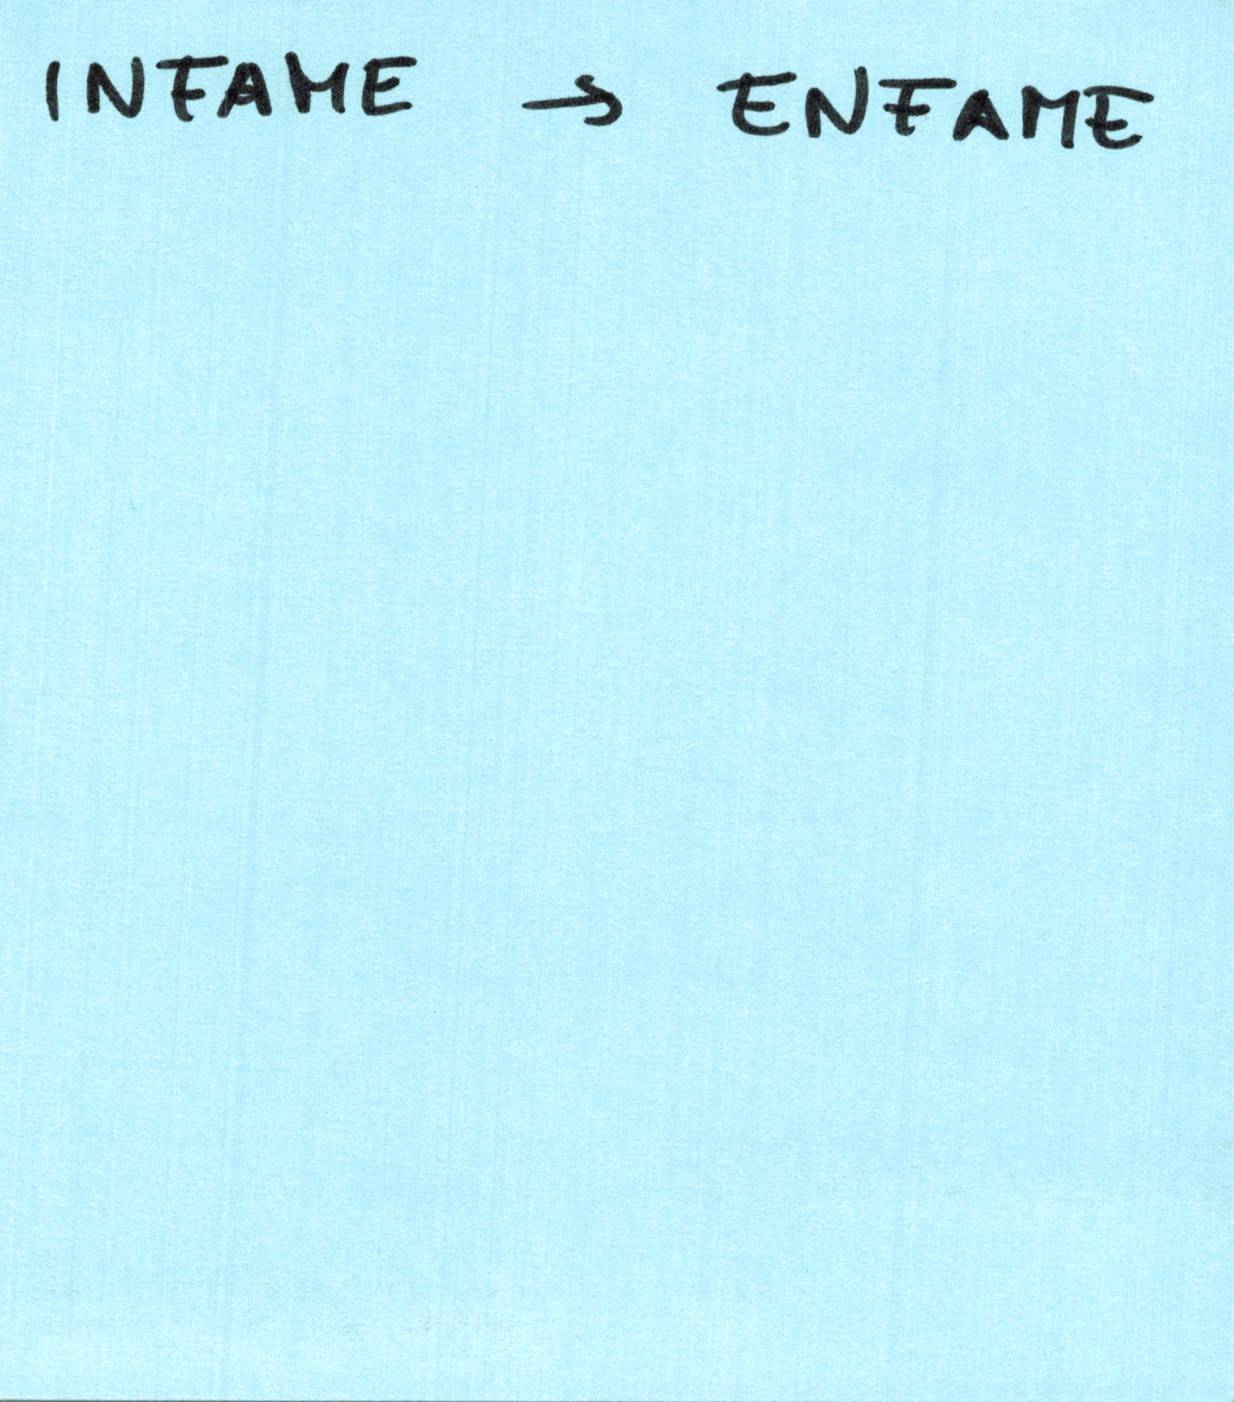 INFAME → ENFAME